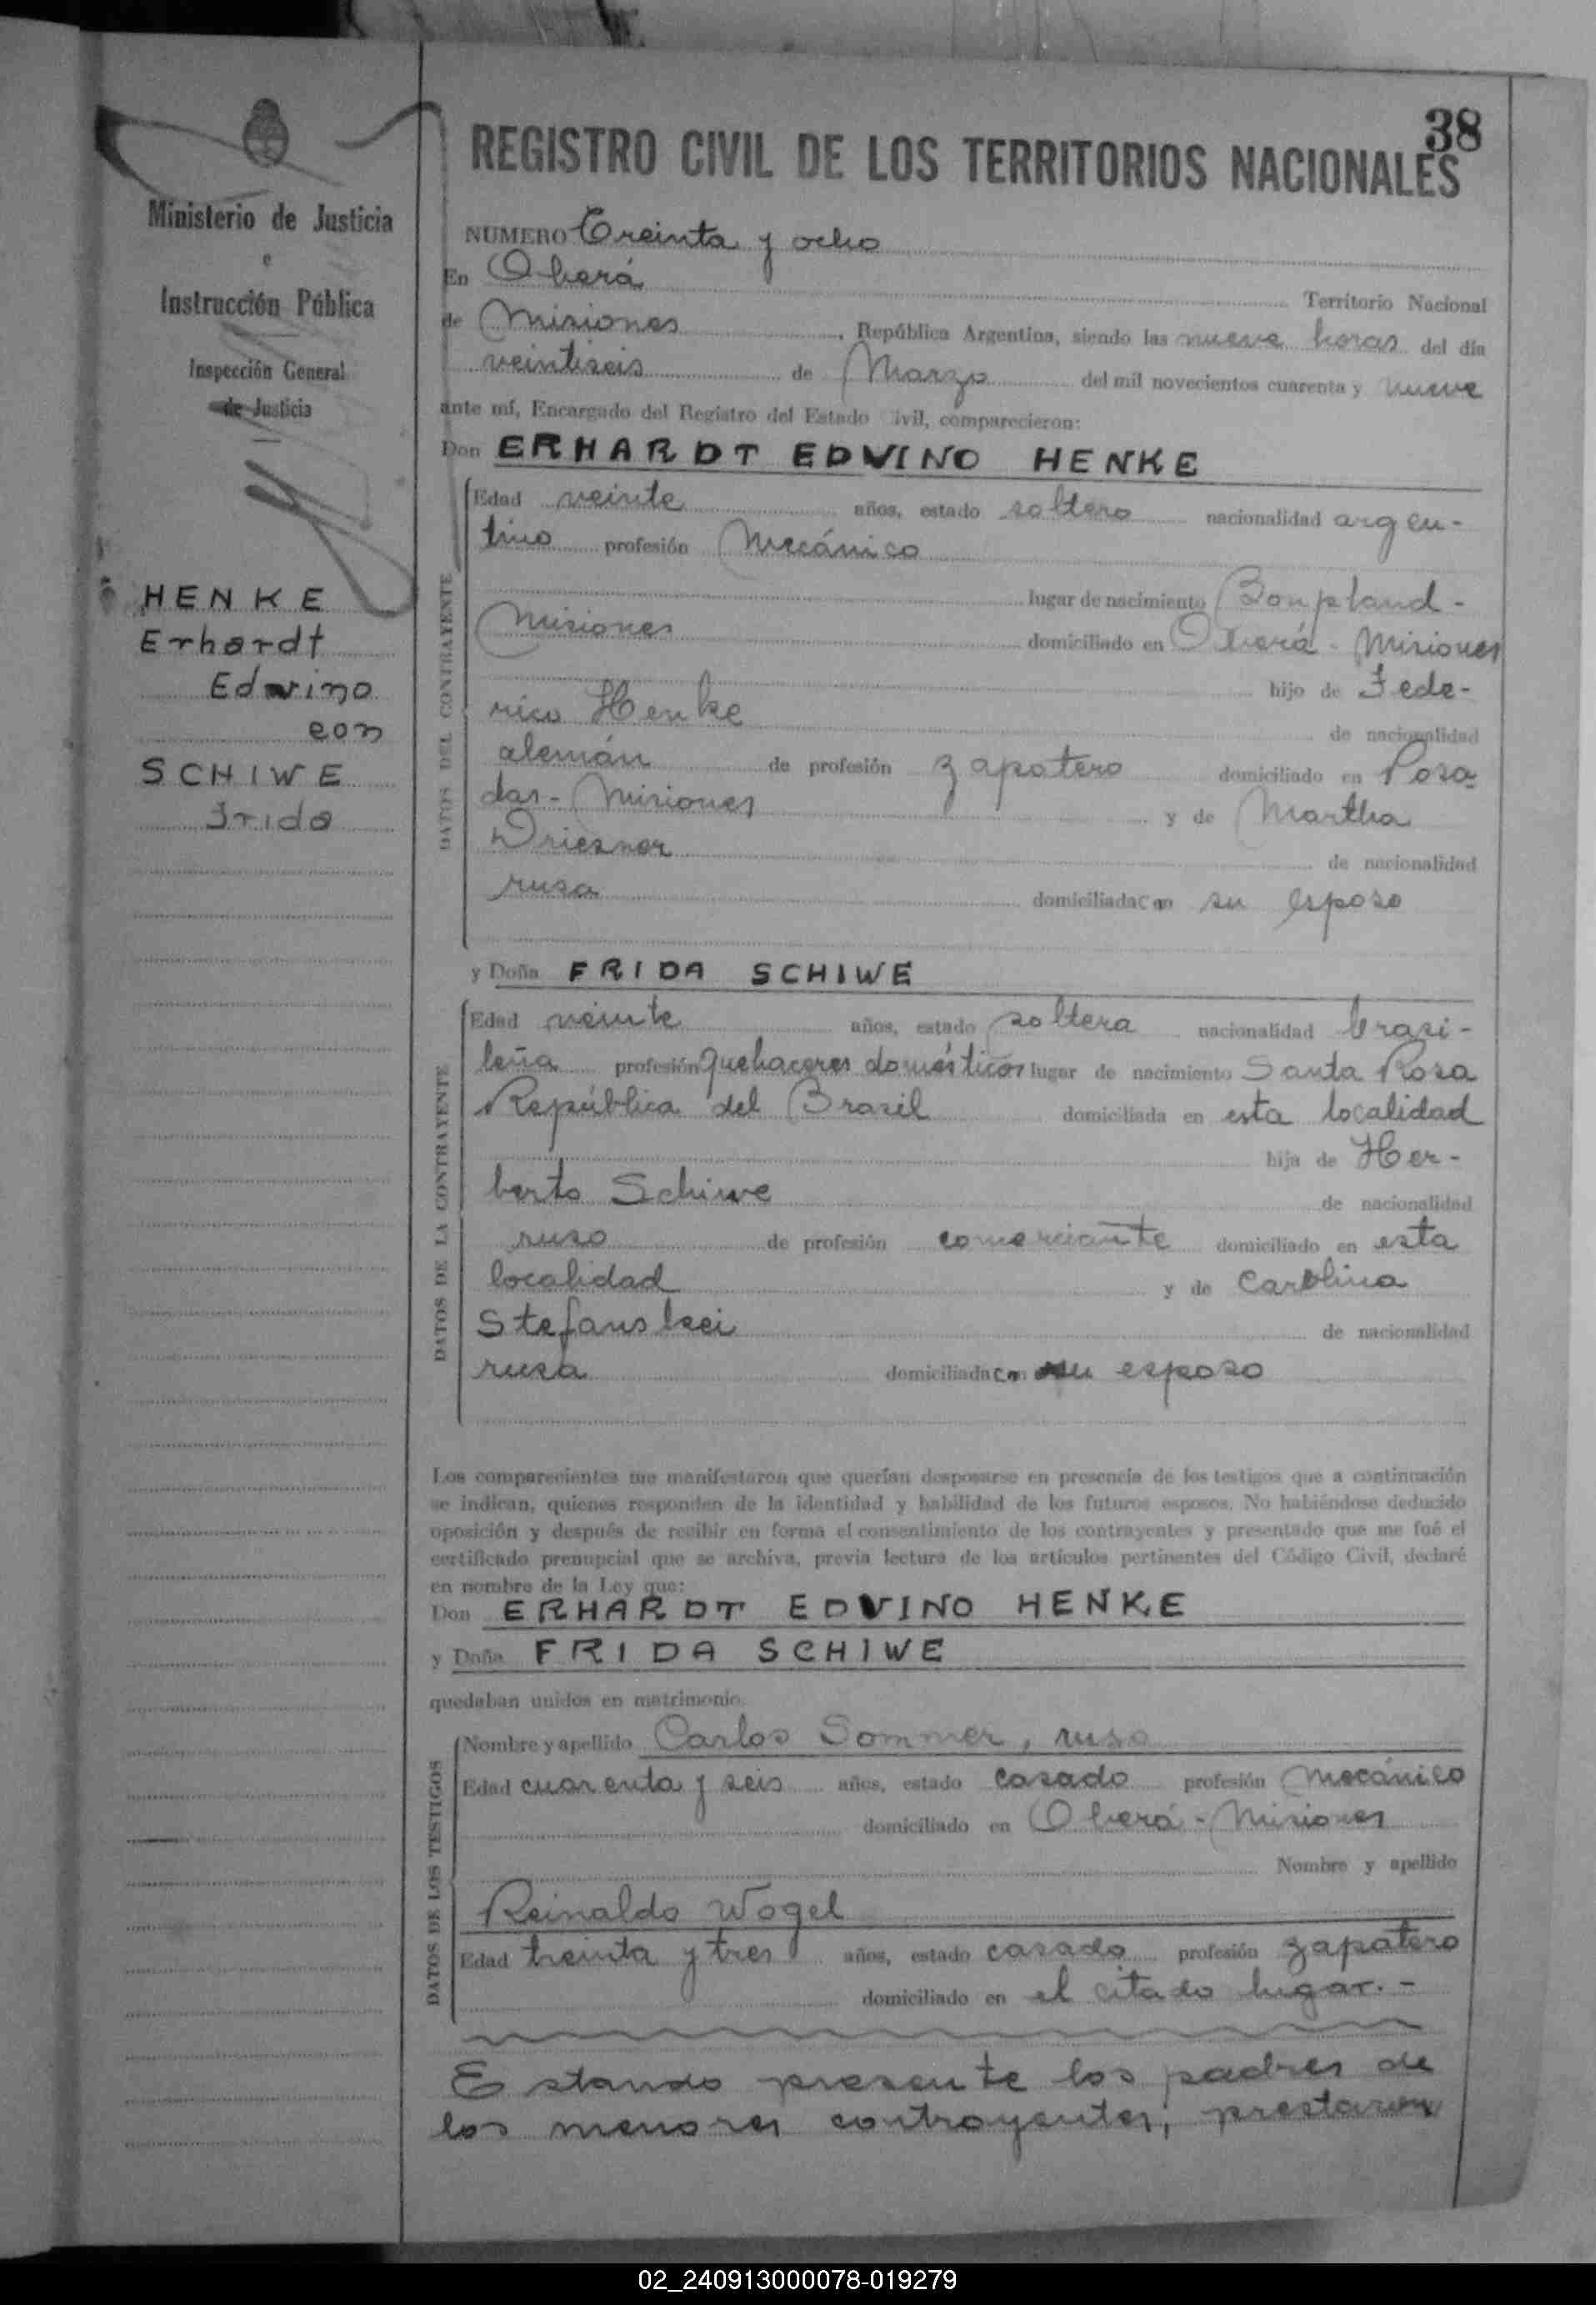 38
REGISTRO CIVIL DE LOS TERRITORIOS NACIONALES
Ministerio de Justicia
e
Instrucción Pública
Inspección General
de Justicia
HENKE
Erhardt
Edwino
con
SCHIWE
Frida
NUMERO Treinta y ocho
En Oberá Territorio Nacional
de Misiones, República Argentina, siendo las nueve horas del día
veintiseis de Marzo del mil novecientos cuarenta y nueve
ante mí, Encargado del Registro del Estado Civil, comparecieron:
Don ERHARDT EDVINO HENKE
DATOS DEL CONTRAYENTE
Edad veinte años, estado soltero nacionalidad argen-
tino profesión Mecánico
lugar de nacimiento Bonpland -
Misiones domiciliado en Oberá - Misiones
hijo de Fede-
rico Henke de nacionalidad
alemán de profesión zapatero domiciliado en Posa
das - Misiones y de Martha
Driesner de nacionalidad
rusa domiciliada con su esposo
y Doña FRIDA SCHIWE
DATOS DE LA CONTRAYENTE
Edad veinte años, estado soltera nacionalidad brasi-
leña profesión Quehaceres domésticos lugar de nacimiento Santa Rosa
República del Brasil domiciliada en esta localidad
hija de Her-
berto Schiwe de nacionalidad
ruso de profesión comerciante domiciliado en esta
localidad y de Carolina
Stefanskei de nacionalidad
rusa domiciliada con su esposo
Los comparecientes me manifestaron que querían desposarse en presencia de los testigos que a continuación
se indican, quienes responden de la identidad y habilidad de los futuros esposos. No habiéndose deducido
oposición y después de recibir en forma el consentimiento de los contrayentes y presentado que me fué el
certificado prenupcial que se archiva, previa lectura de los artículos pertinentes del Código Civil, declaré
en nombre de la Ley que:
Don ERHARDT EDVINO HENKE
y Doña FRIDA SCHIWE
quedaban unidos en matrimonio.
DATOS DE LOS TESTIGOS
Nombre y apellido Carlos Sommer, ruso
Edad cuarenta y seis años, estado casado profesión Mecánico
domiciliado en Oberá - Misiones
Nombre y apellido
Reinaldo Wogel
Edad treinta y tres años, estado casado profesión zapatero
domiciliado en el citado lugar. -
Estando presente los padres de
los menores contrayentes, prestaron
02_240913000078-019279